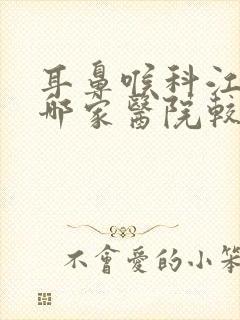 耳鼻喉科江
哪家醫院較
不會愛的小笨